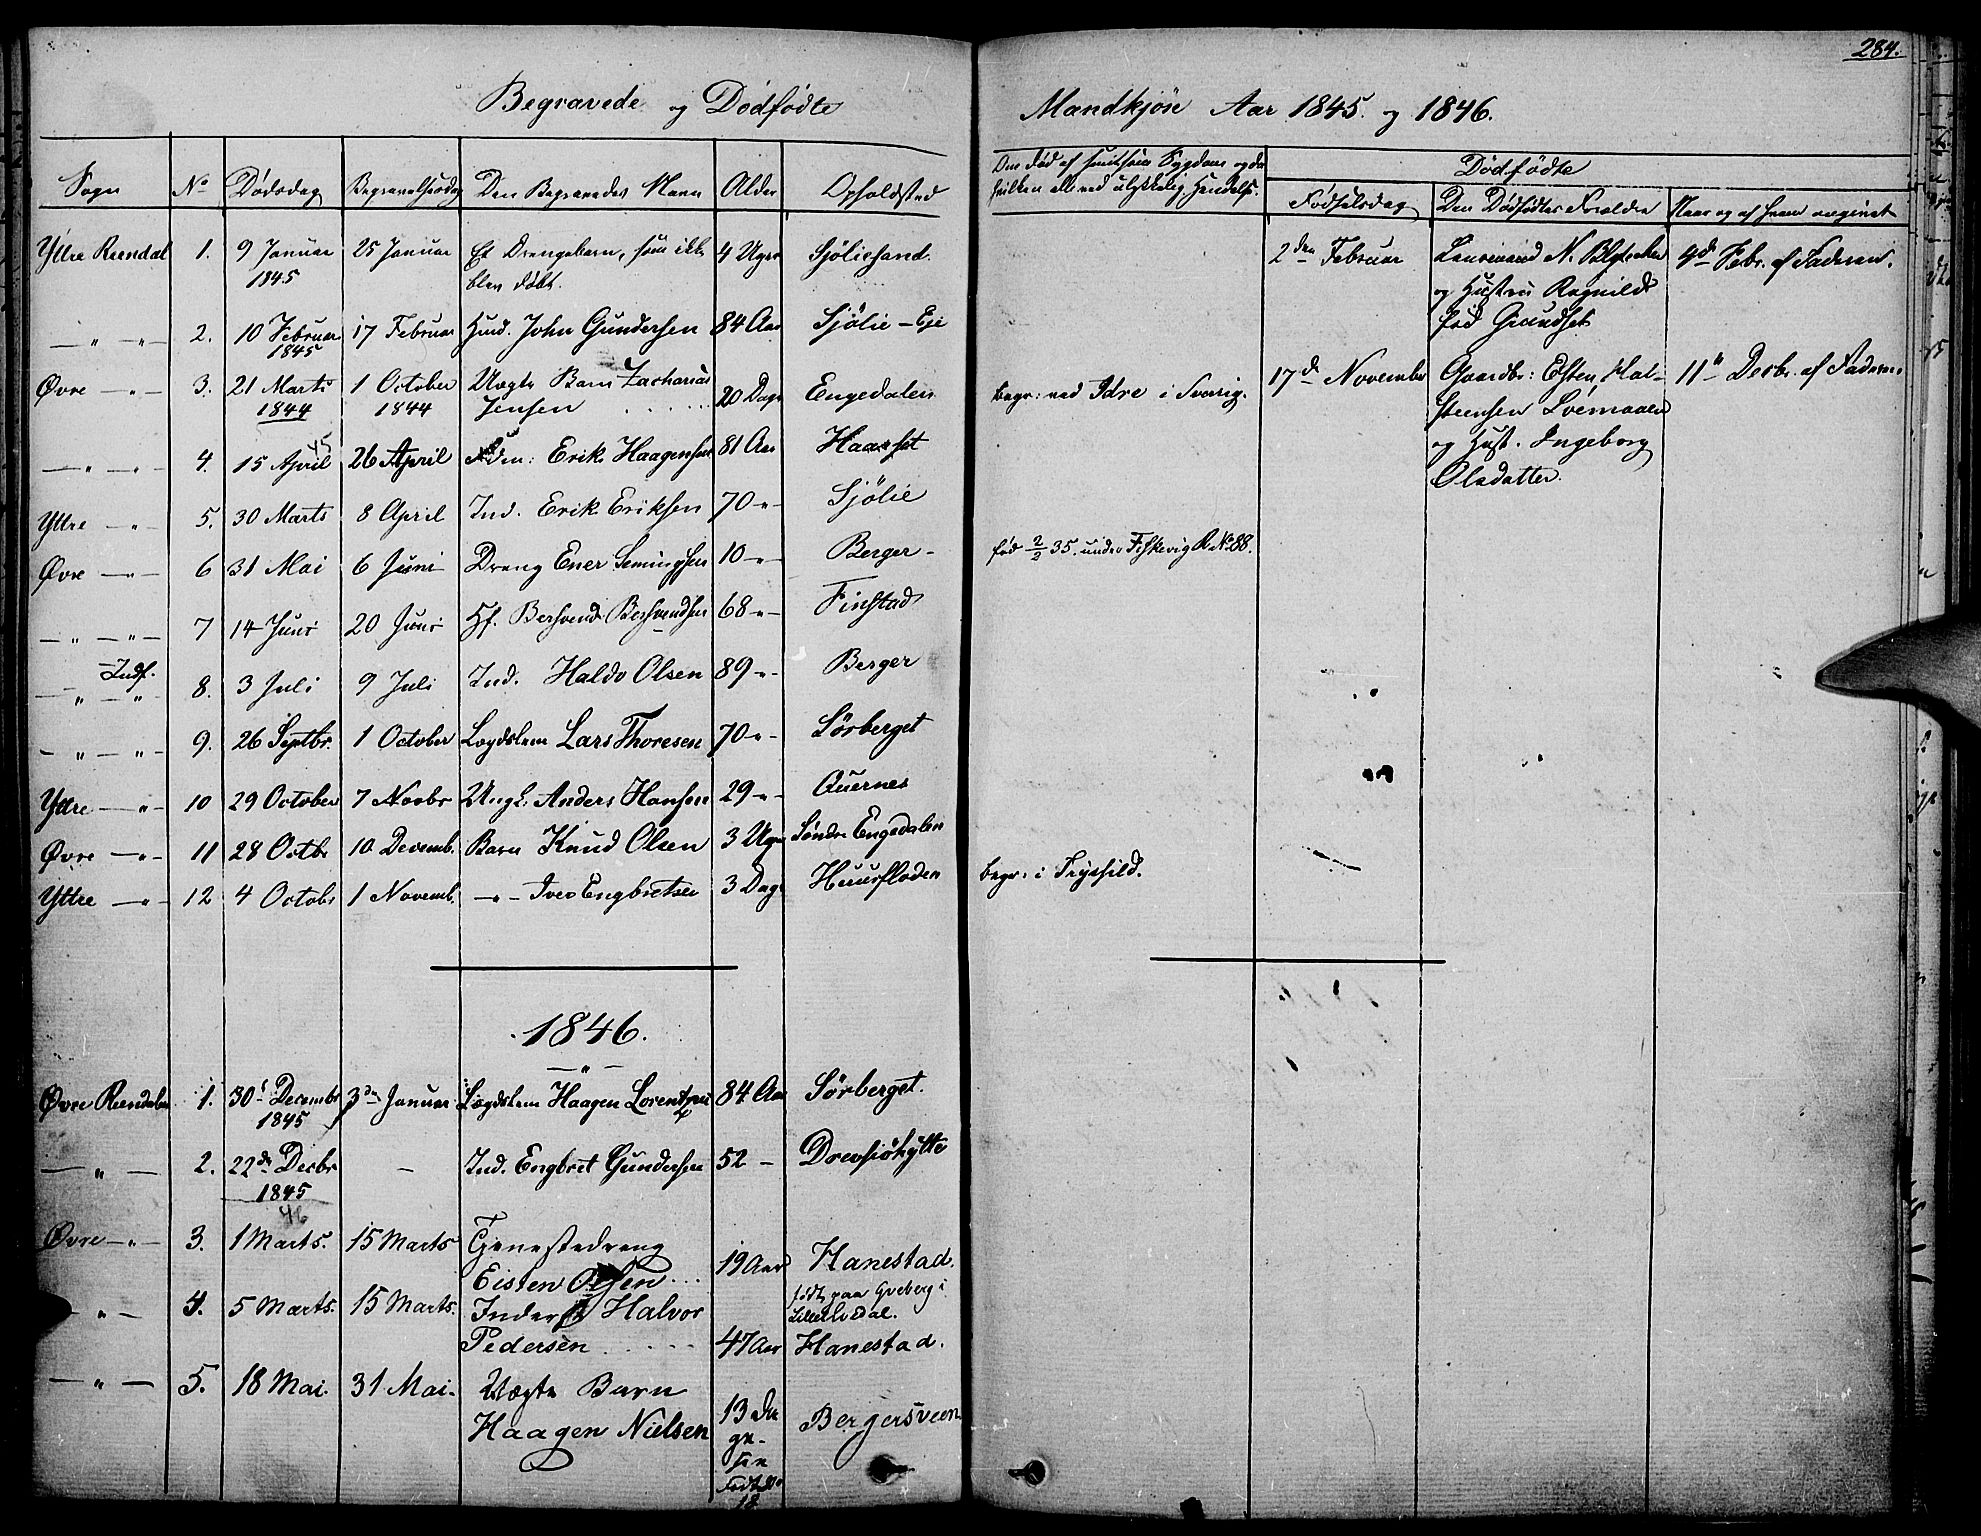 284.
Begravede og Dødfødte
Mandkjøn Aar 1845. og 1846.
Sogn No Dødsdag Begravelsesdag Den Begravedes Navn Alder Opholdssted
Om død af smitsom Sygdom og da
hvilken eller ved ulykkelig Hendelse.
Dødfødte
Fødselsdag Den Dødfødtes Forældre Naar og af hvem angivet
Yttre Rendal 1. 9 Januar 25 Januar Et Drengebarn, som ikke 4 Uger Sjøliesand.
1845 blev døbt.
— " — " — 2. 10 Februar 17 Februar Huusm. John Gundersen 84 Aar Sjølie – Eje
1845
Øvre — " — 3. 21 Marts 1 October Uægte Barn Zacharias 20 Dage Engedalen begr: ved Idre i Sverig.
1844 1844 Jensen . . . . .
— " — " — 4. 15 April 45 26 April Erik Haagensen 81 Aar Haarset
Yttre — " — 5. 30 Marts 8 April Ind. Erik Eriksen 70 - " - Sjølie
Øvre — " — 6 31 Mai 6 Juni Dreng Ener Semingsen 10 - " - Berger - født 2/2 35. under Fiskevig R No 88.
— " — " — 7 14 Juni 20 Juni Gf. Bersvend Bersvendsen 68 - " - Finstad
Indf.
— " — " 8. 3 Juli 9 Juli Ind. Haldo Olsen 89 - " - Berger
— " — " — 9. 26 Septbr. 1 October Lægdslem Lars Thoresen 70 - " - Sørberget
Yttre — " — 10 29 October 7 Novbr Ungk. Anders Hansen 29 - " - Quernes
Øvre — " — 11 28 Octbr 10 Decemb. Barn Knud Olsen 3 Uger Søndre Engedalen
Yttre — " — 12 4 Octobr 1 Novemb. - " - Iver Engbretsen 3 Dage Huusfloden begr: i Trysild.
2den Februar
og Hustru Ragnild
fød Grandset
4de Febr. af Faderen.
17de November Gaardbr: Esten Hal-
steensen Lvemoen
og Hust. Ingeborg
Olsdatter.
11te Decbr. af Faderen.
1846.
— " —
Øvre Rendalen 1. 30te Decembr 3den Januar Lægdslem Haagen Lorentzen 84 Aar Sørberget.
1845
— " — 2. 22de Decbr - Ind. Engbret Gundersen 52 - Drevsiøhytte
1845
46
Øvre — " — 3. 1 Marts. 15 Marts Tjenestedreng
Eisten Olsen . . . 19 Aar Hanestad.
— " — 4. 5 Marts. 15 Marts. Inderst Halvor født paa Greberg i
Lilleelvedal.
Pedersen . . . . . 47 Aar Hanestad.
— " — 5. 18 Mai. 31 Mai. Uægte Barn
Haagen Nielsen 13 Da
ge- Bergersveen